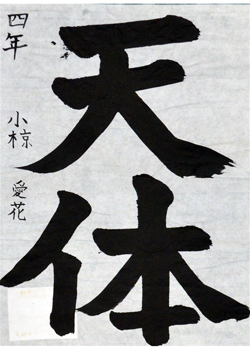 天体
四年
小椋 愛花